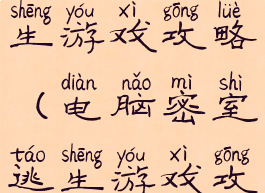 shēng yóu xì gōng lüè
生游戏攻略
diàn nǎo mì shì
（电脑密室
táo shēng yóu xì gōng
逃生游戏攻